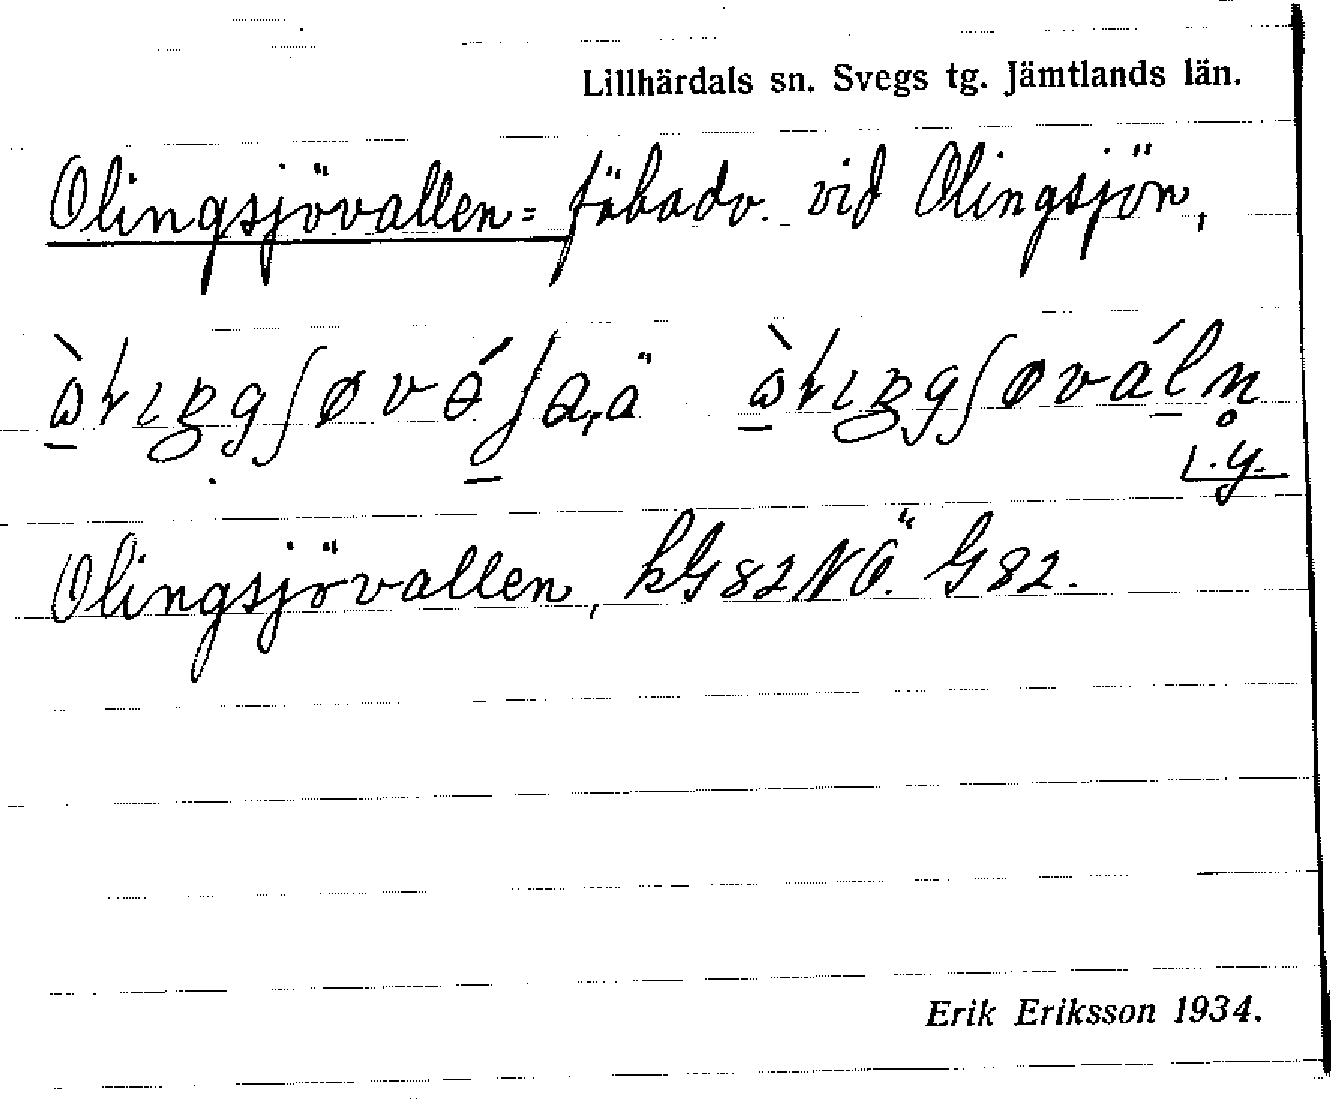 Lillhärdals sn. Svegs tg. Jämtlands län.
Olingsjövallen = fäbodv. vid Olingsjön,
Olingsjövallen, kG82NÖ. G82.
Erik Eriksson 1934.